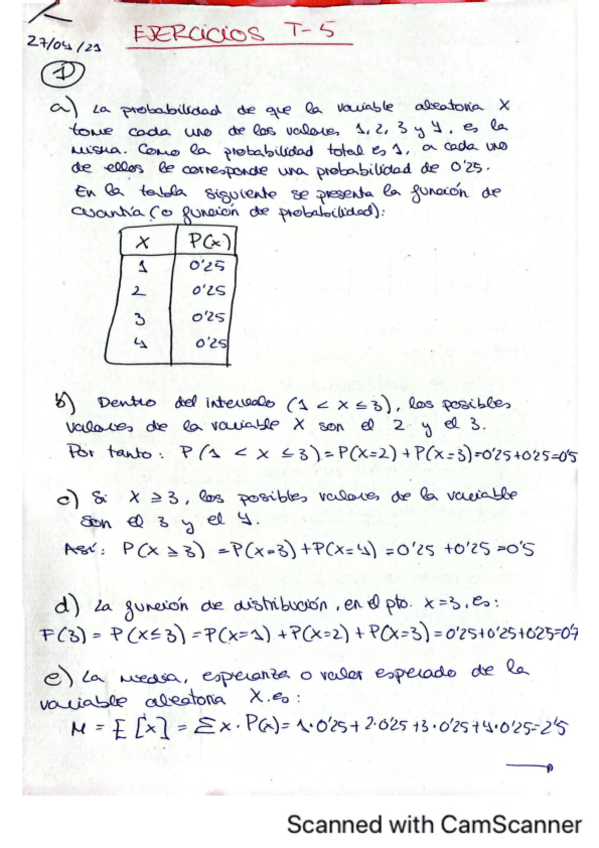 27/04/21
EJERCICIOS T-5
1
a) La probabilidad de que la variable aleatoria X
tome cada uno de los valores 1, 2, 3 y 4, es la
misma. Como la probabilidad total es 1, a cada uno
de ellos le corresponde una probabilidad de 0'25.
En la tabla siguiente se presenta la función de
cuantía (o función de probabilidad):
X P(x)
1 0'25
2 0'25
3 0'25
4 0'25
b) Dentro del intervalo (1 < x ≤ 3), los posibles
valores de la variable X son el 2 y el 3.
Por tanto: P(1 < x ≤ 3) = P(x=2) + P(x=3) = 0'25+0'25=0'5
c) Si X ≥ 3, los posibles valores de la variable
son el 3 y el 4.
Así: P(X ≥ 3) = P(x=3) + P(x=4) = 0'25 + 0'25 = 0'5
d) La función de distribución, en el pto. x=3, es:
F(3) = P(x≤3) = P(x=1) + P(x=2) + P(x=3) = 0'25+0'25+0'25=0'7
e) La media, esperanza o valor esperado de la
variable aleatoria X. es:
M = E [x] = Σ x · P(x) = 1·0'25 + 2·0'25 + 3·0'25 + 4·0'25 = 2'5
Scanned with CamScanner